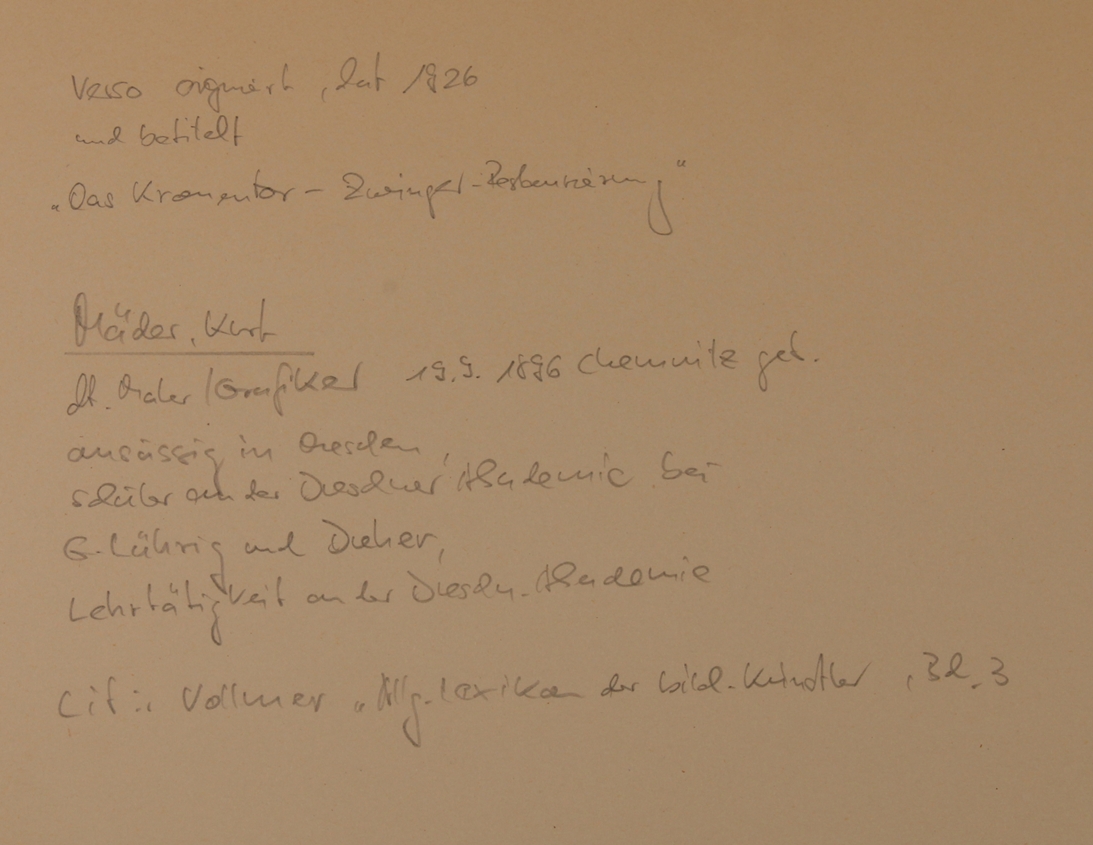 Verso signiert, dat 1926
und betitelt
„Das Kronentor - Zwinger-Restaurierung"
Mäder, Kurt
dt. Maler/Grafiker 19.9. 1896 Chemnitz geb.
ansässig in Dresden,
Schüler an der Dresdner Akademie bei
G. Lührig und Dreher,
Lehrtätigkeit an der Dresdn. Akademie
Lit.: Vollmer „Allg. Lexikon der bild. Künstler, Bd. 3